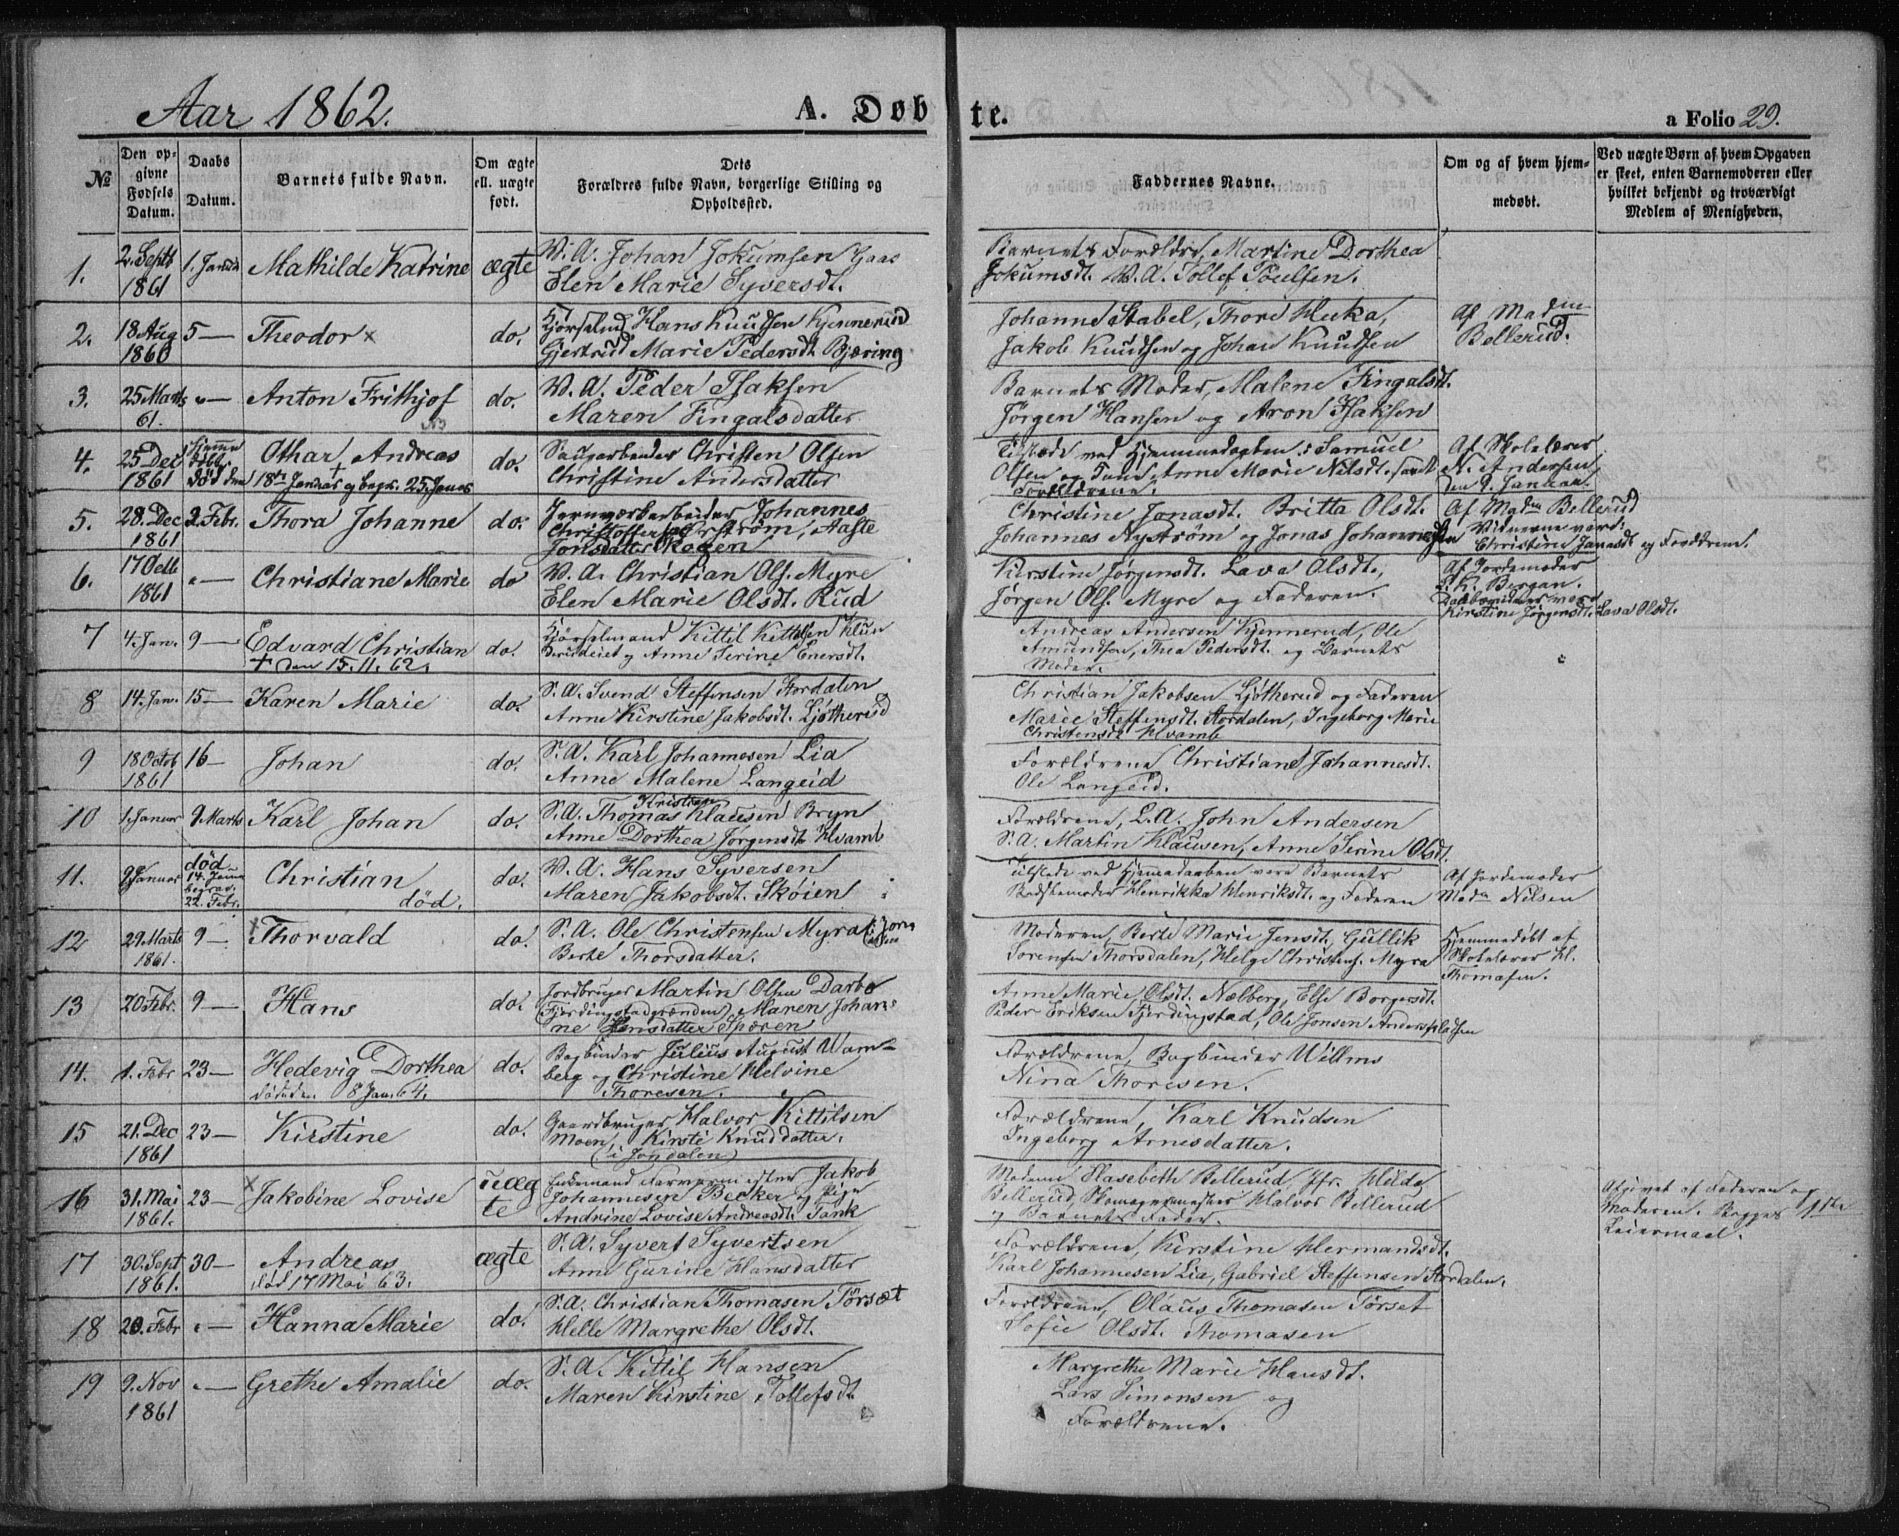 Aar 1862.
A. Døbte.
a Folio 29.
№
Den opgivne Fødsels Datum.
Daabs Datum.
Barnets fulde Navn.
Om ægte ell. uægte født.
Dets Forældres fulde Navn, borgerlige Stilling og Opholdssted.
Faddernes Navne.
Om og af hvem hjemmedøbt.
Ved uægte Børn af hvem Opgaven er skeet, enten Barnemoderen eller hvilket bekjendt og troværdigt Medlem af Menigheden.
1. 2. Septb 1861 1. Januar Mathilde Katrine ægte
V. A. Johan Jokumsen
Elen Marie Syversdt.
Barnets Forældre, Martine Dorthea
Jokumsdt. V. A. Tollef Poulsen.
2. 18 Aug 1860 5 — Theodor × do.
Kjørselmd Hans Knudsen Kjennerud
Gjertrud Marie Pedersdt. Bjæring
Johanne Stabel, Thore Huka,
Jakob Knudsen og Johan Knudsen
Af Madme
Bellerud.
3. 25 Marts 61. " — Anton Frithjof do.
V. A. Peder Isaksen
Maren Fingalsdatter
Barnets Moder, Malene Fingalsdt.
Jørgen Hansen og Aron Isaksen
4. 25 Dec 1861 Othar Andreas do.
død den 18de Januar og begr. 25 Januar
Saugarbeider Christen Olsen
Christine Andersdatter
Tilstede ved Hjemmedaaben: Samuel
Olsen og Anne Marie Nilsdt. samt
Forældrene.
Af Skolelærer
N. Andersen
den 9. Januar.
5. 28. Dec 1861 2. Febr. Thora Johanne do.
Jernværkarbeider Johannes
Christoffersen Aaste
Jonsdatter Skogen
Christine Jonasdt. Britta Olsdt.
Johannes Nystrøm og Jonas Johannesen
Af Madm Bellerud
Vidnerne vare:
Christine Jonasdt og Forældrene.
6. 17 Octb 1861 " — Christiane Marie do
V. A. Christian Ols. Myre
Elen Marie Olsdt. Rud
Kirstine Jørgensdt. Lava Olsdt.,
Jørgen Ols. Myre og Faderen.
Af Jordemoder
Bergan.
Kirstine Jørgensdt. Lava Olsdt.
7 4. Jan. 9 — Edvard Christian do.
† den 15. 11. 62.
Kjørselmand Kittil Kittilsen
og Anne Serine Enersdt.
Andreas Andersen Kjennerud, Ole
Amundsen, Thea Pedersdt. og Barnets
Moder.
8 14. Jan. 15 — Karen Marie do.
S. A. Svend Steffensen Stordalen
Anne Kirstine Jakobsdt. Ljøtherud
Christian Jakobsen Ljøtherud og Faderen
Marie Steffensdt. Stordalen, Ingeborg Marie
Christensdt Hvamb
9 18 Octob 1861 16 — Johan do.
S. A. Karl Johannesen Lia
Anne Malene Langeid
Forældrene Christiane Johannesdt.
Ole Langeid.
10 1. Januar 9 Marts Karl Johan do.
S. A. Thomas Kristian Klausen Bryn
Anne Dorthea Jørgensdt. Hvamb
Forældrene, L. A. John Andersen
S. A. Martin Klausen, Anne Serine Olsdt.
11. 9 Januar død 14. Janu begrav. 22. Febr. Christian død. do.
V. A. Hans Syversen
Maren Jakobsdt. Skøien
Tilstede ved Hjemmedaaben vare Barnets
Bedstemoder Henrikka Henriksdt. og Faderen
Af Jordemoder
Madm Nilsen
12 29. Marts 1861. 9 — × Thorvald do.
S. A. Ole Christensen Myra
Berte Thorsdatter.
Moderen, Berte Marie Jensdt., Gullik
Sørensen Thorsdalen, Helge Christens. Myra
Hjemmedøbt af
Skolelærer H.
Thomasen.
13 20 Febr. 9 — Hans do.
Jordbruger Martin Olsen Darbo
(Fjerdingstadgrænden) Maren Johanne
Hansdatter Spæren
Anne Marie Olsdt. Nælberg, Else Borgersdt.
Peder Eriksen Fjerdingstad, Ole Jonsen
14. 1. Febr 23 — Hedevig Dorthea do.
døde den 8 Jan. 64.
Bogbinder Julius August Wamberg og Christine Helvine
Thoresen.
Forældrene, Bogbinder Willms
Nina Thoresen.
15 21. Dec 1861 23 — Kirstine do.
Gaardbruger Halvor Kittilsen
Moen, Kirsti Knudsdatter.
(i Jondalen)
Forældrene, Karl Knudsen
Ingeborg Arnesdatter.
16 31. Mai 1861. 23 — × Jakobine Lovise uægte
Enkemand Jakob
Johannesen Becker og Pige
Andrine Lovise Andreasdt. Tank
Madame Elasebeth Bellerud Jfr. Hilda
Bellerud, Skomagermester Halvor Bellerud
og Barnets Fader.
Opgivet af Faderen og
Moderen. Begges 1ste
Leiermaal.
17 30. Sept 1861. 30 — Andreas ægte
død 17 Mai 63.
S. A. Syvert Syvertsen
Anne Gurine Hansdatter
Forældrene, Kirstine Hermandsdt.
Karl Johannesen Lia, Gabriel Steffensen Stordalen.
18 20. Febr " — Hanna Marie do.
S. A. Christian Thomasen Tørsæt
Helle Margrethe Olsdt.
Forældrene, Olaus Thomasen Tørset
Sofie Olsdt. Thomasen
19 9. Nov 1861 " — Grethe Amalie do.
S. A. Kittil Hansen
Maren Kirstine Tollefsdt.
Margrethe Marie Hansdt.
Lars Simonsen og
Forældrene.